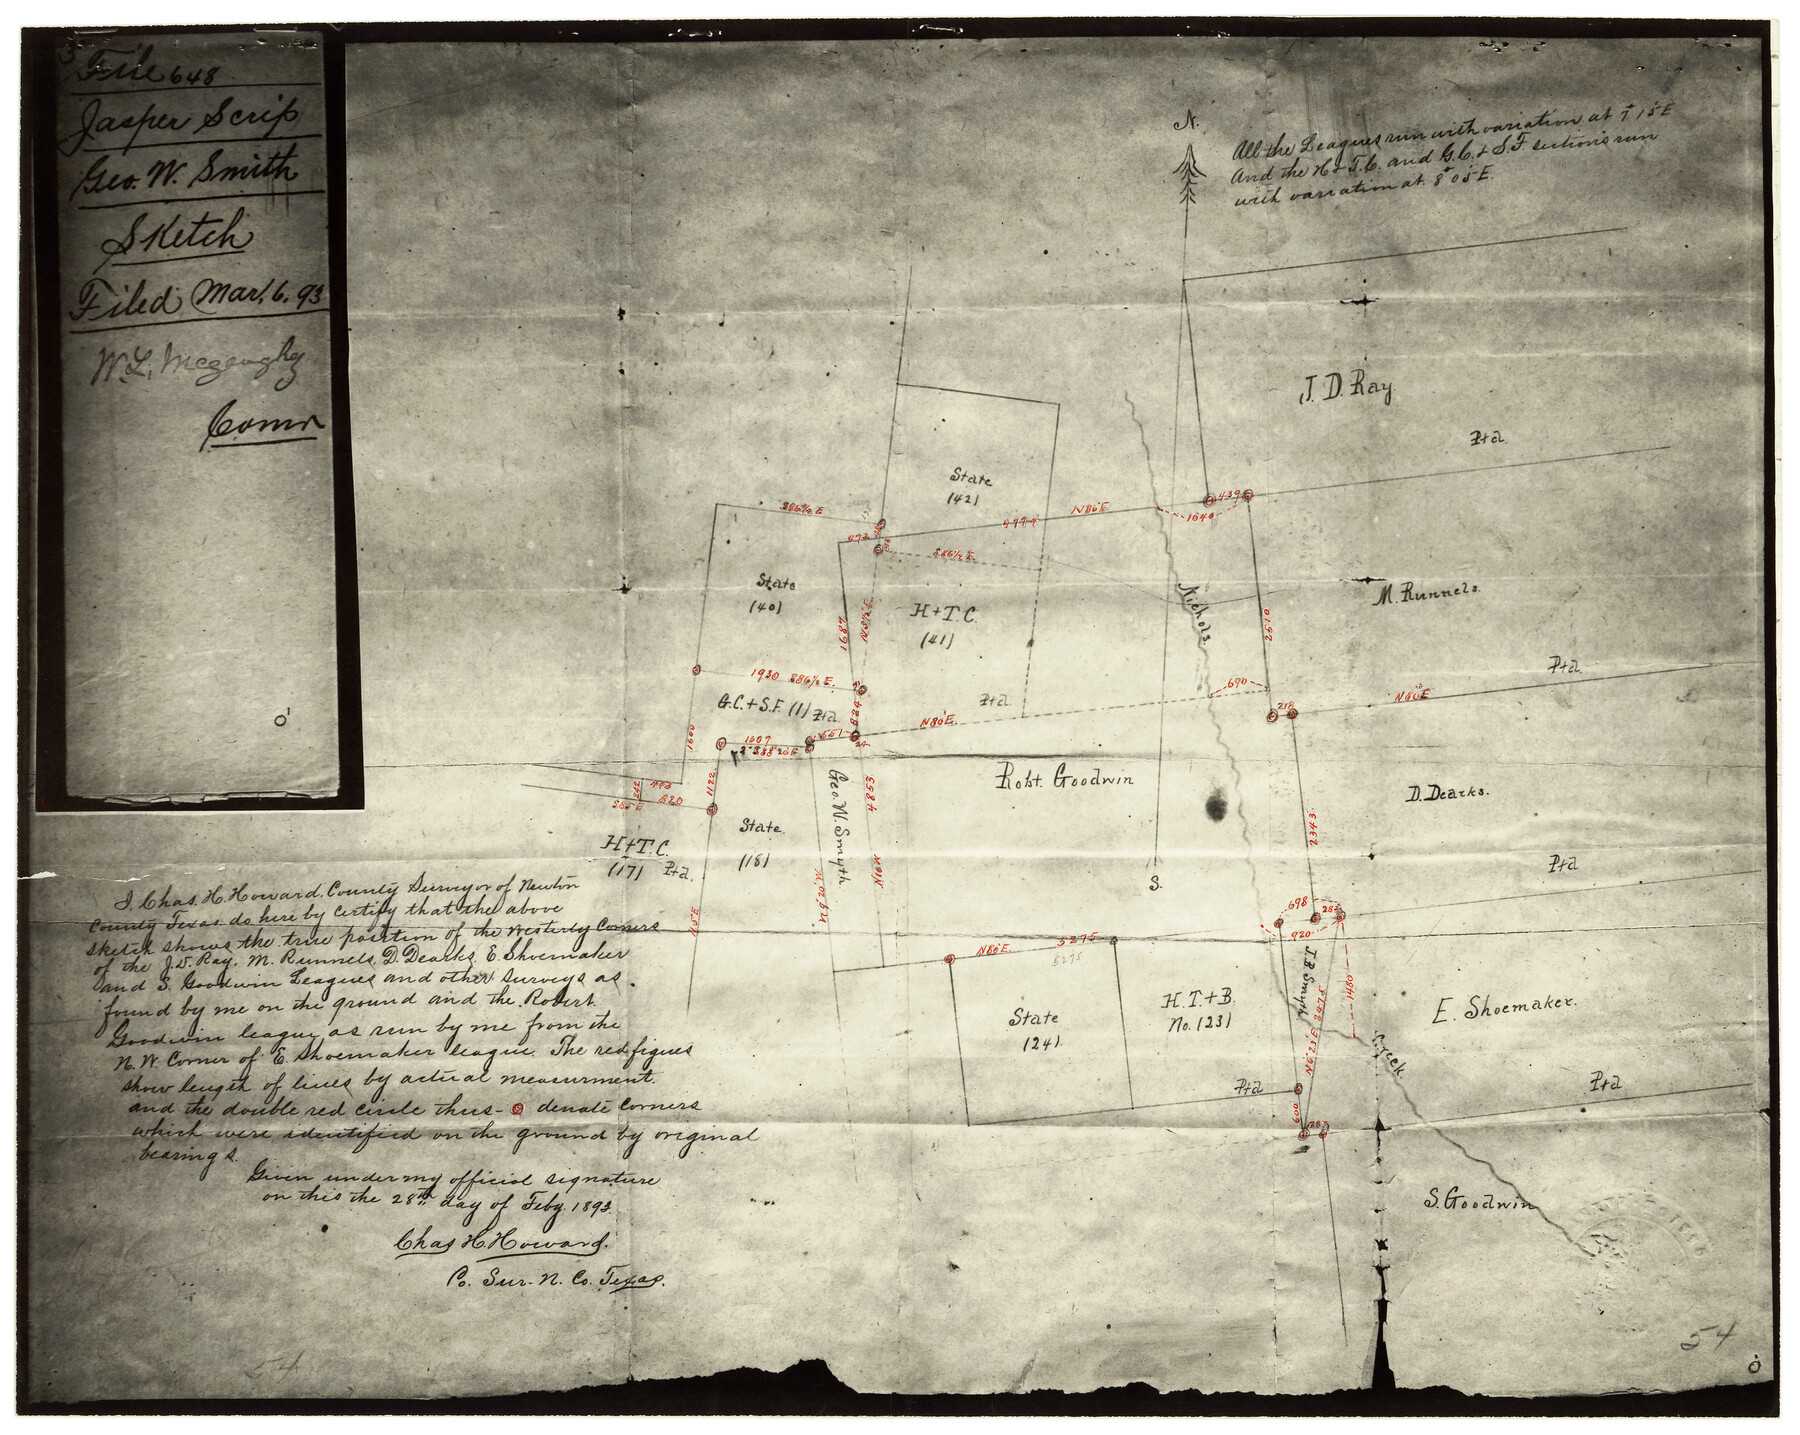 File 648
Jasper Scrip
Geo. W. Smith
Sketch
Filed Mar. 6. 93
W. L. McGaughy
Comr
N.
All the Leagues run with variation at 7°15'E
And the H & T.C. and G.C. & S.F sections run
with variation at 8°05'E.
J. D. Ray
Ptd.
State
(42)
N80°E
439
1640
S86½E
472
S86½E.
State
(40)
H+T.C.
(41)
1687
N3½E
Nichols
2610
M. Runnels.
Ptd.
1930 S86½E.
G.C.+S.F. (1) Ptd.
824
Ptd
N80°E.
690
218
N80°E
1600
1607
S88°20'E
551
24
1122
Robt. Goodwin
D. Dearks.
242
493
S85E
820
Geo. W. Smyth
4853
2343
H+T.C.
(17) Ptd.
State
(18)
N10W
S.
Ptd
698
282
920
N80E.
5275
5275
J.B. Smyth
1480
State
(24).
H.T.+B.
No. (23)
N6°23'E 2475
E. Shoemaker.
Creek.
Ptd
600
287
Ptd
S. Goodwin
I. Chas. H. Howard. County Surveyor of Newton
County Texas do here by certify that the above
sketch shows the true position of the Westerly Corners
of the J.D. Ray, M. Runnels, D. Dearks, E. Shoemaker
and S. Goodwin Leagues and other surveys as
found by me on the ground and the Robert
Goodwin league as run by me from the
N. W. Corner of E. Shoemaker league. The red figures
show length of lines by actual measurment.
and the double red circle thus- denate Corners
which were identified on the ground by original
bearings.
Given under my official signature
on this the 28th day of Feby. 1893.
Chas H. Howard.
Co. Sur. N. Co. Texas.
54
54